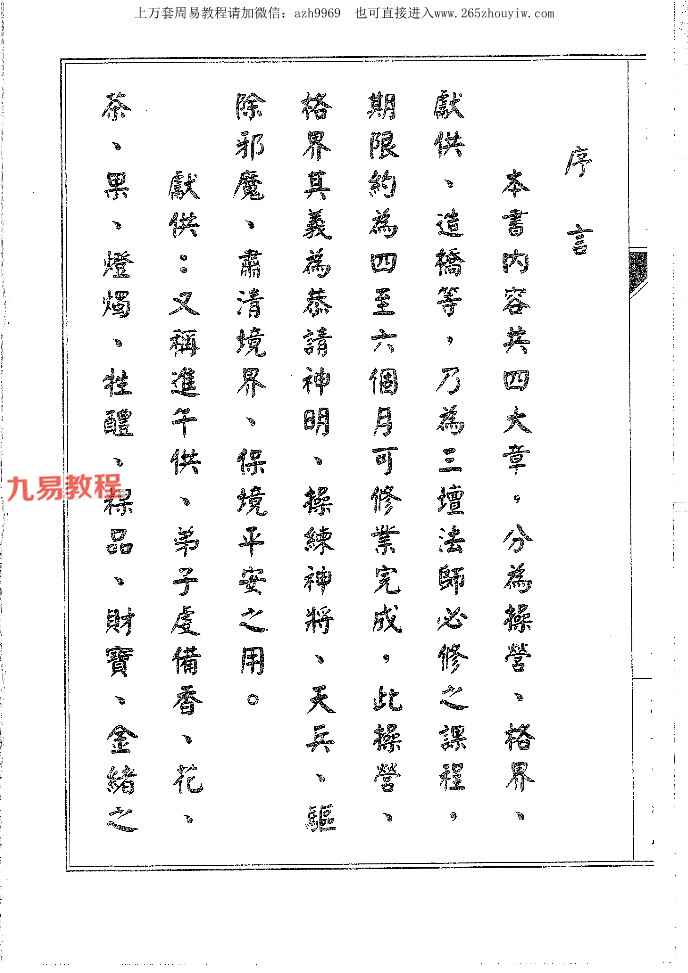 上万套周易教程请加微信：azh9969 也可直接进入www.265zhouyiw.com
序言
本書内容共四大章，分為操營、格界、
獻供、造橋等，乃為三壇法師必修之課程，
期限約為四至六個月可修業完成，此操營、
格界其義為恭請神明、操練神將、天兵、驅
除邪魔、肅清境界、保境平安之用。
獻供：又稱進午供、弟子虔備香、花、
茶、果、燈燭、牲醴、粿品、財寶、金緒之
九易教程